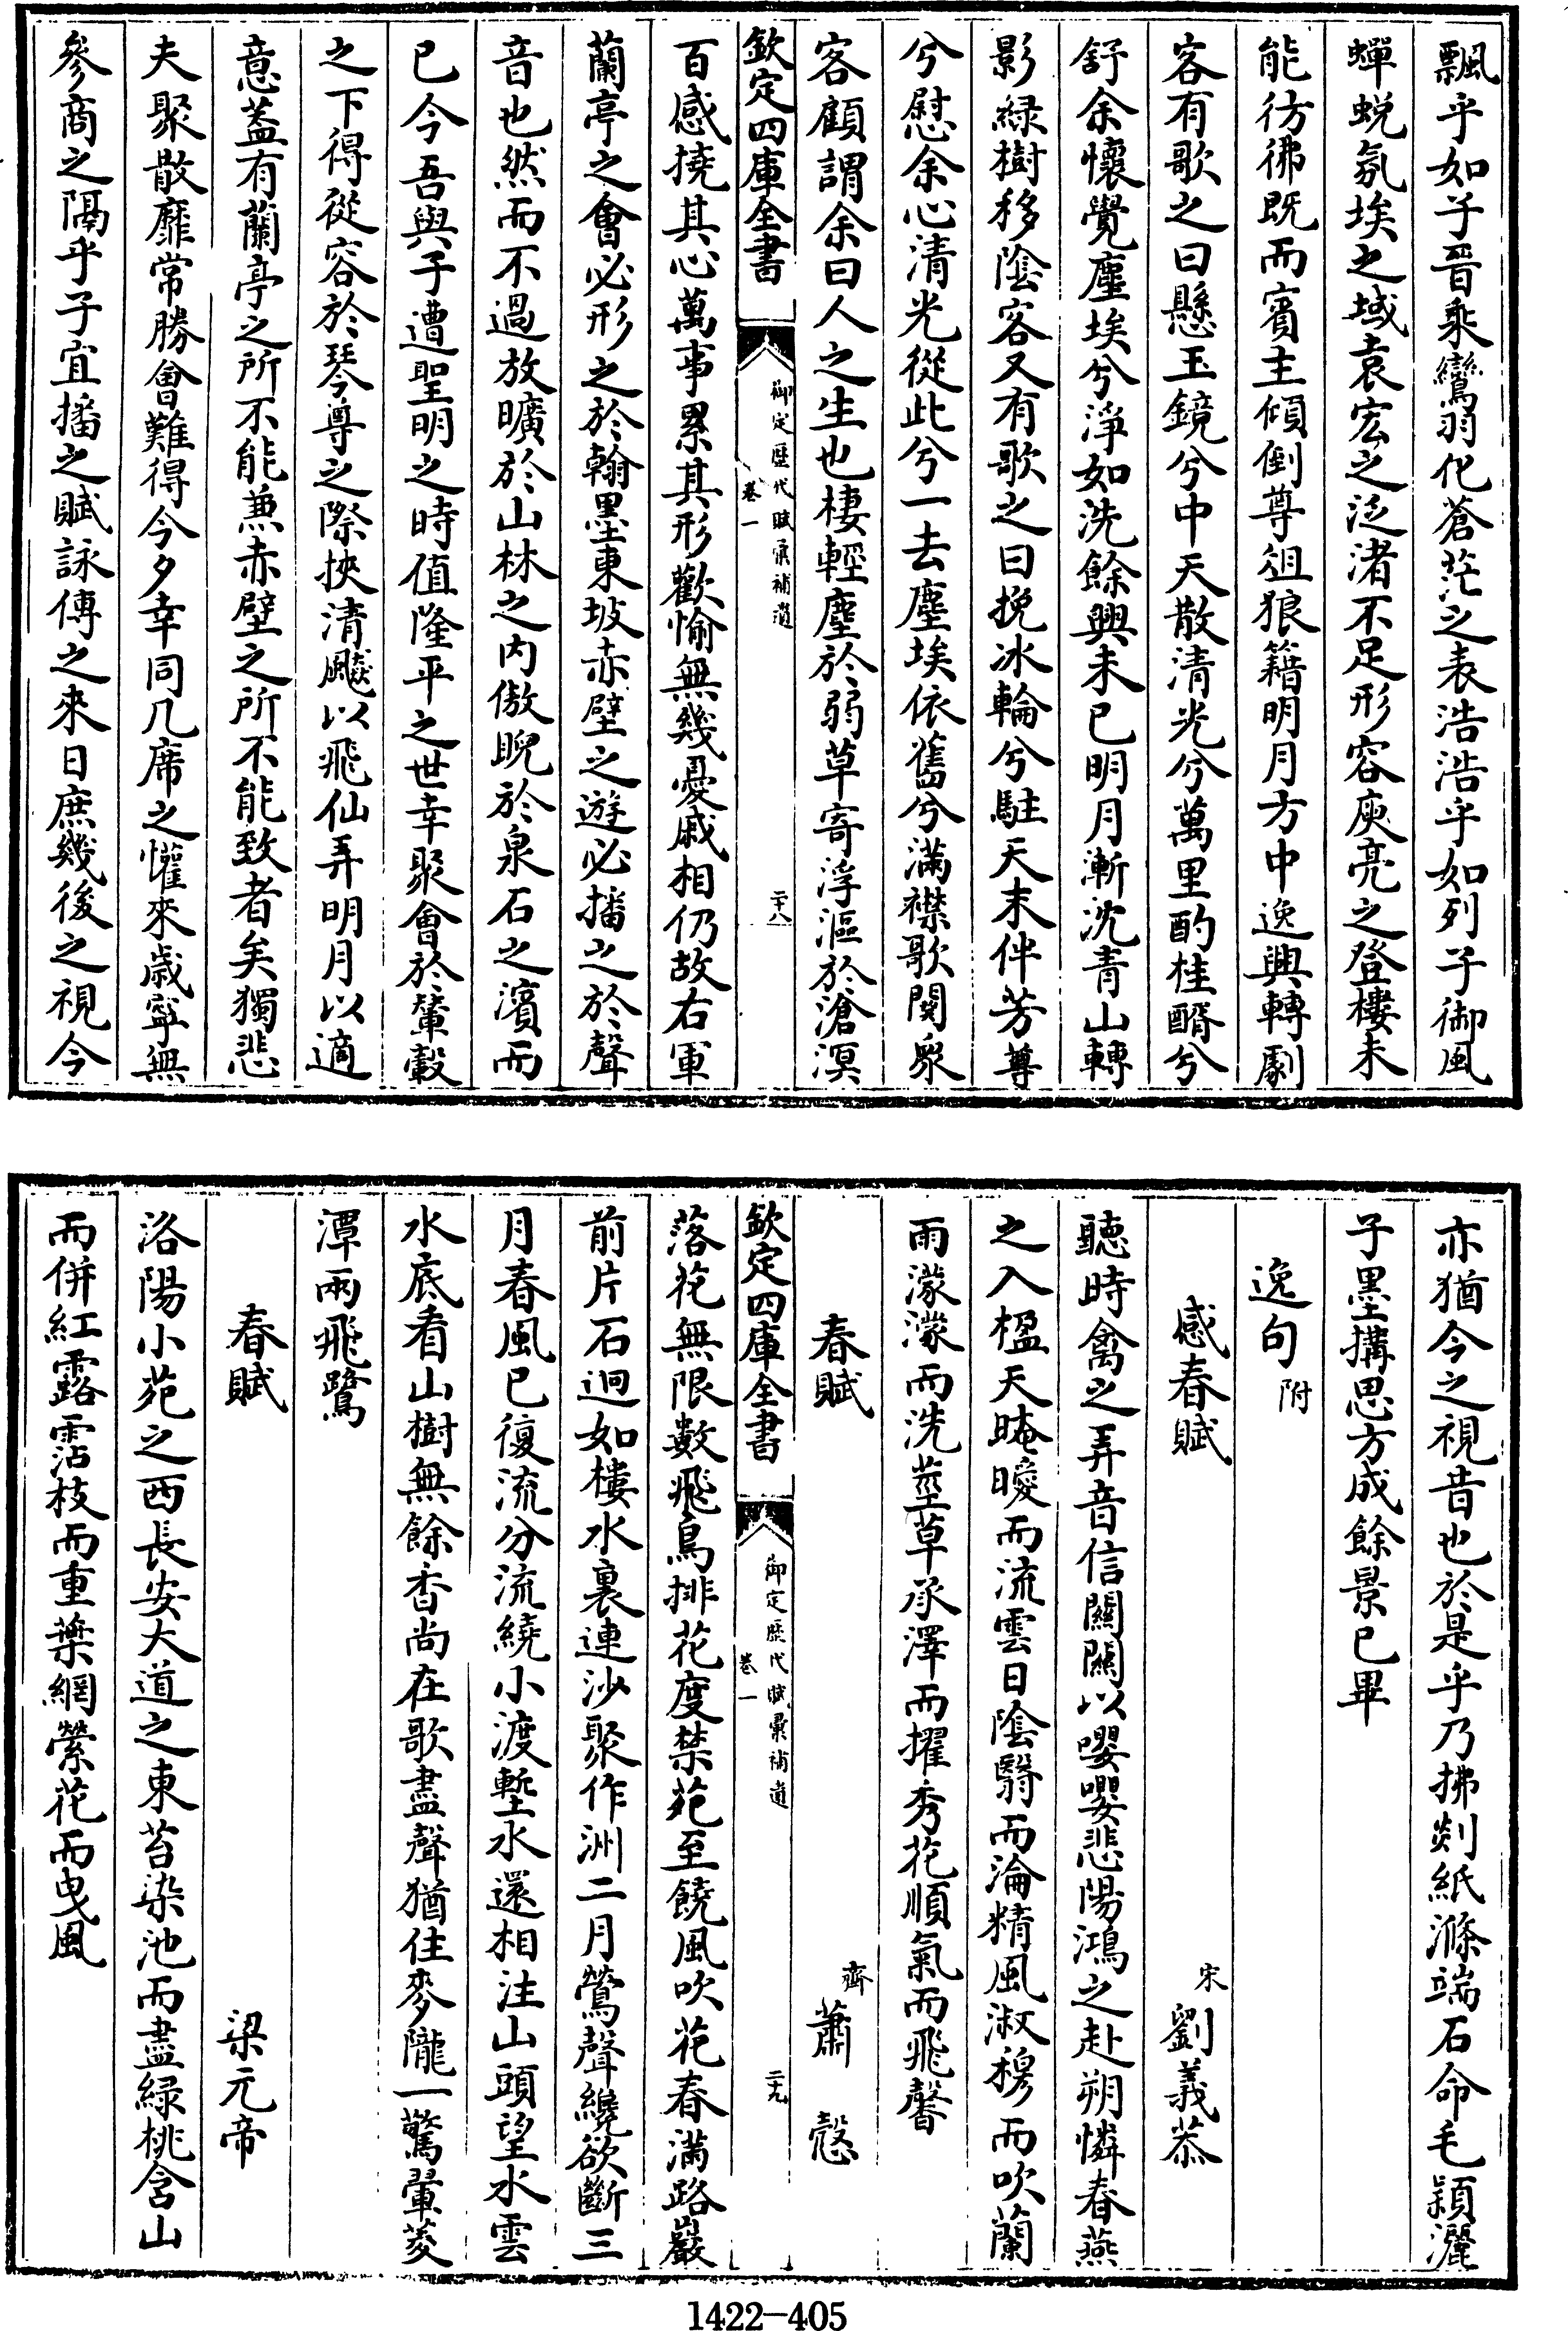 飄乎如子晉乘鸞羽化蒼茫之表浩浩乎如列子御風
蟬蛻氛埃之域袁宏之泛渚不足形容庾亮之登樓未
能彷彿既而賓主傾倒尊俎狼籍明月方中逸興轉劇
客有歌之曰懸玉鏡兮中天散清光兮萬里酌桂醑兮
舒余懷覺塵埃兮淨如洗餘興未已明月漸沈青山轉
影緑樹移陰客又有歌之曰挽冰輪兮駐天末伴芳尊
兮慰余心清光從此兮一去塵埃依舊兮滿襟歌闋衆
客顧謂余曰人之生也棲輕塵於弱草寄浮漚於滄溟
欽定四庫全書
御定歴代賦彙補遺
卷一
二十八
百感撓其心萬事累其形歡愉無幾憂戚相仍故右軍
蘭亭之會必形之於翰墨東坡赤壁之遊必播之於聲
音也然而不過放曠於山林之内傲睨於泉石之濱而
已今吾與子遭聖明之時值隆平之世幸聚會於輦轂
之下得從容於琴尊之際挾清飈以飛仙弄明月以適
意蓋有蘭亭之所不能兼赤壁之所不能致者矣獨悲
夫聚散靡常勝會難得今夕幸同几席之懽來歳寧無
參商之隔乎子宜播之賦詠傳之來日庶幾後之視今
亦猶今之視昔也於是乎乃拂剡紙滌端石命毛穎灑
子墨搆思方成餘景已畢
逸句附
感春賦
宋劉義恭
聽時禽之弄音信關關以嚶嚶悲陽鴻之赴朔憐春燕
之入楹天晻曖而流雲日陰翳而淪精風淑穆而吹蘭
雨濛濛而洗莖草承澤而擢秀花順氣而飛馨
春賦
齊蕭慤
欽定四庫全書
御定歴代賦彙補遺
卷一
二十九
落花無限數飛鳥排花度禁苑至饒風吹花春滿路巖
前片石迥如樓水裏連沙聚作洲二月鶯聲纔欲斷三
月春風已復流分流繞小渡塹水還相注山頭望水雲
水底看山樹無餘香尚在歌盡聲猶住麥隴一驚翬菱
潭兩飛鷺
春賦
梁元帝
洛陽小苑之西長安大道之東苔染池而盡緑桃含山
而併紅露霑枝而重葉網縈花而曳風
1422—405